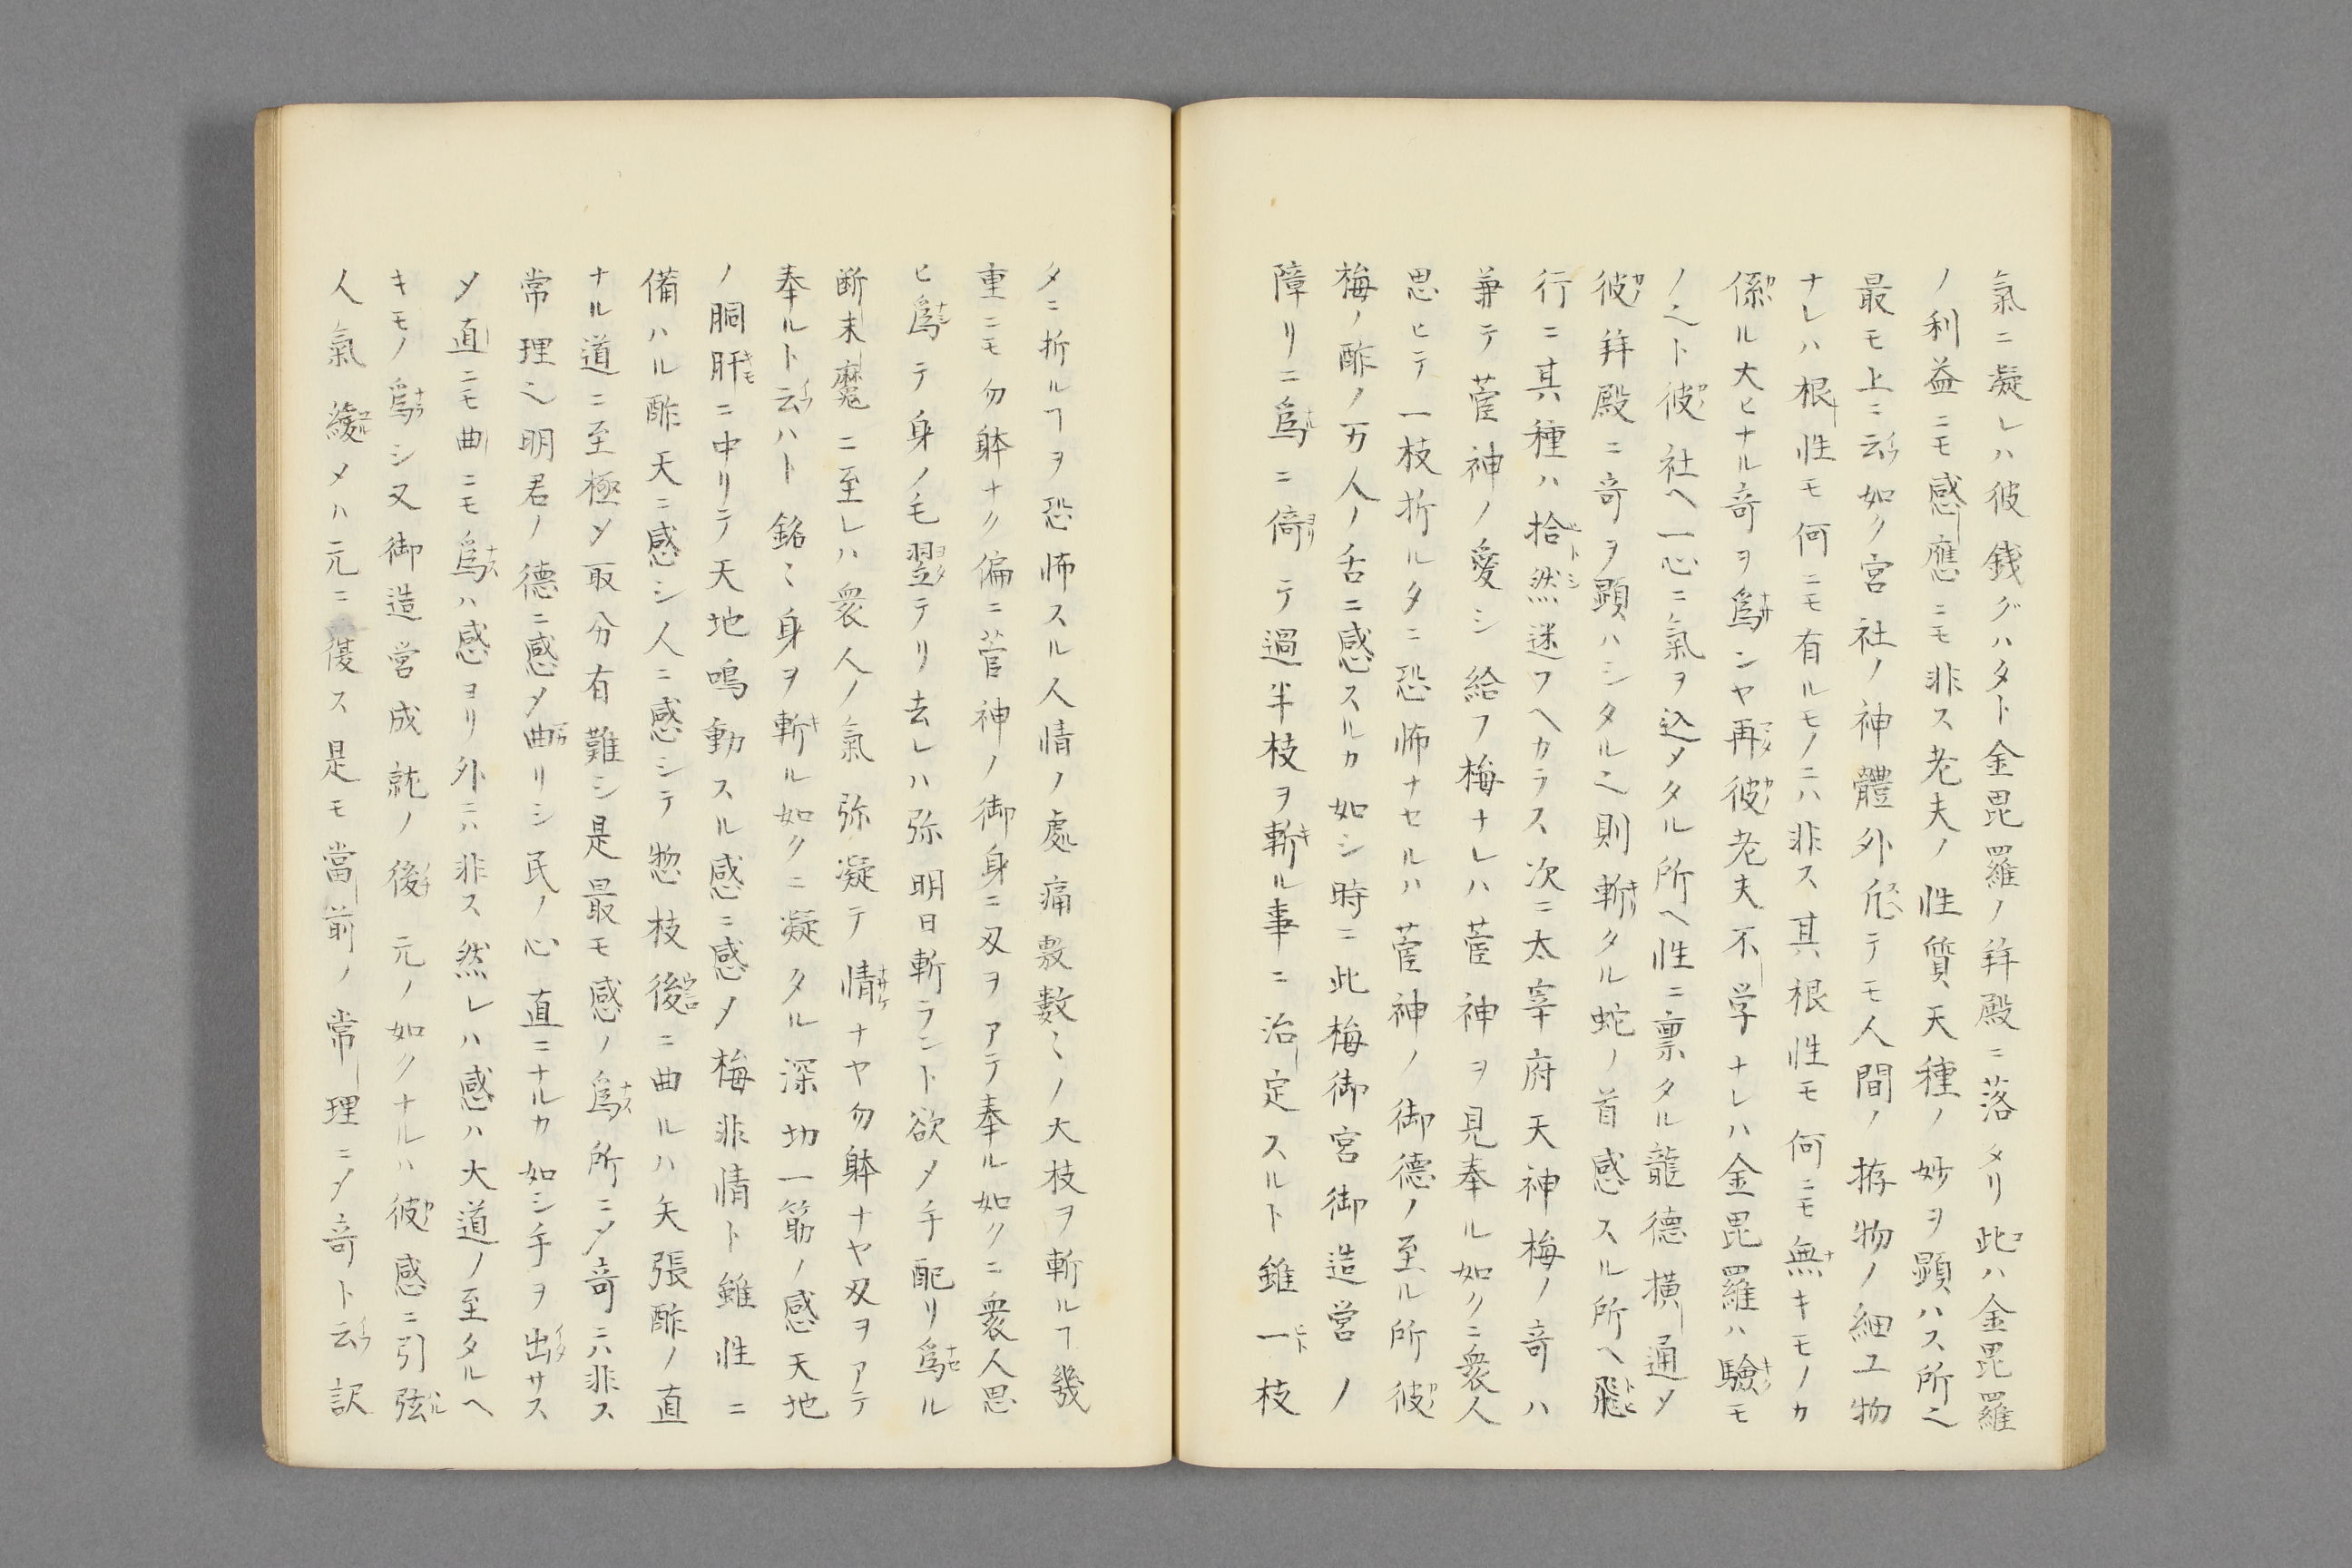 氣ニ凝レハ彼銭グハタト金毘羅ノ拝殿ニ落タリ此ハ金毘羅
ノ利益ニモ感應ニモ非ス老夫ノ性質天種ノ妙ヲ顕ハス所之
最モ上ニ云如ク宮社ノ神體外テモ人間ノ拵物ノ細工物
ナレハ根性モ何ニモ有ルモノニハ非ス其根性モ何ニモ無キモノカ
係ル大ヒナル竒ヲ爲ンヤ再彼老夫不学ナレハ金毘羅ハ驗モ
ノ之ト彼社ヘ一心ニ氣ヲ込メタル所ヘ性ニ禀タル龍德横通メ
彼拝殿ニ竒ヲ顕ハシタル之則斬タル蛇ノ首感スル所ヘ飛
行ニ其種ハ拾然迷フヘカラス次ニ太宰府天神梅ノ竒ハ
兼テ菅神ノ愛シ給フ梅ナレハ菅神ヲ見奉ル如クニ衆人
思ヒテ一枝折ルタニ恐怖ナセルハ菅神ノ御德ノ至ル所彼
梅ノ酢ノ万人ノ舌ニ感スルカ如シ時ニ此梅御宮御造営ノ
障リニ爲ニ倚テ過半枝ヲ斬ル事ニ治定スルト雖一枝
タニ折ルヿヲ恐怖スル人情ノ處痛敷数〻ノ大枝ヲ斬ルヿ幾
重ニモ勿躰ナク偏ニ菅神ノ御身ニ刄ヲアテ奉ル如クニ衆人思
ヒ爲テ身ノ毛竪テリ去レハ弥明日斬ラント欲メ手配リ爲ル
断末魔ニ至レハ衆人ノ氣弥凝テ情ナヤ勿躰ナヤ刄ヲアテ
奉ルト云ハト銘〻身ヲ斬ル如クニ凝タル深切一筋ノ感天地
ノ胴肝ニ中リテ天地鳴動スル感ニ感メ梅非情ト雖性ニ
備ハル酢天ニ感シ人ニ感シテ惣枝後ニ曲ルハ矢張酢ノ直
ナル道ニ至極メ取分有難シ是最モ感ノ爲所ニメ竒ニハ非ス
常理之明君ノ德ニ感メ曲リシ民ノ心直ニナルカ如シ手ヲ出サス
メ直ニモ曲ニモ爲ハ感ヨリ外ニハ非ス然レハ感ハ大道ノ至タルヘ
キモノ爲シ又御造営成就ノ後元ノ如クナルハ彼感ニ引弦
人氣緩メハ元ニ復ス是モ當前ノ常理ニメ竒ト云訳